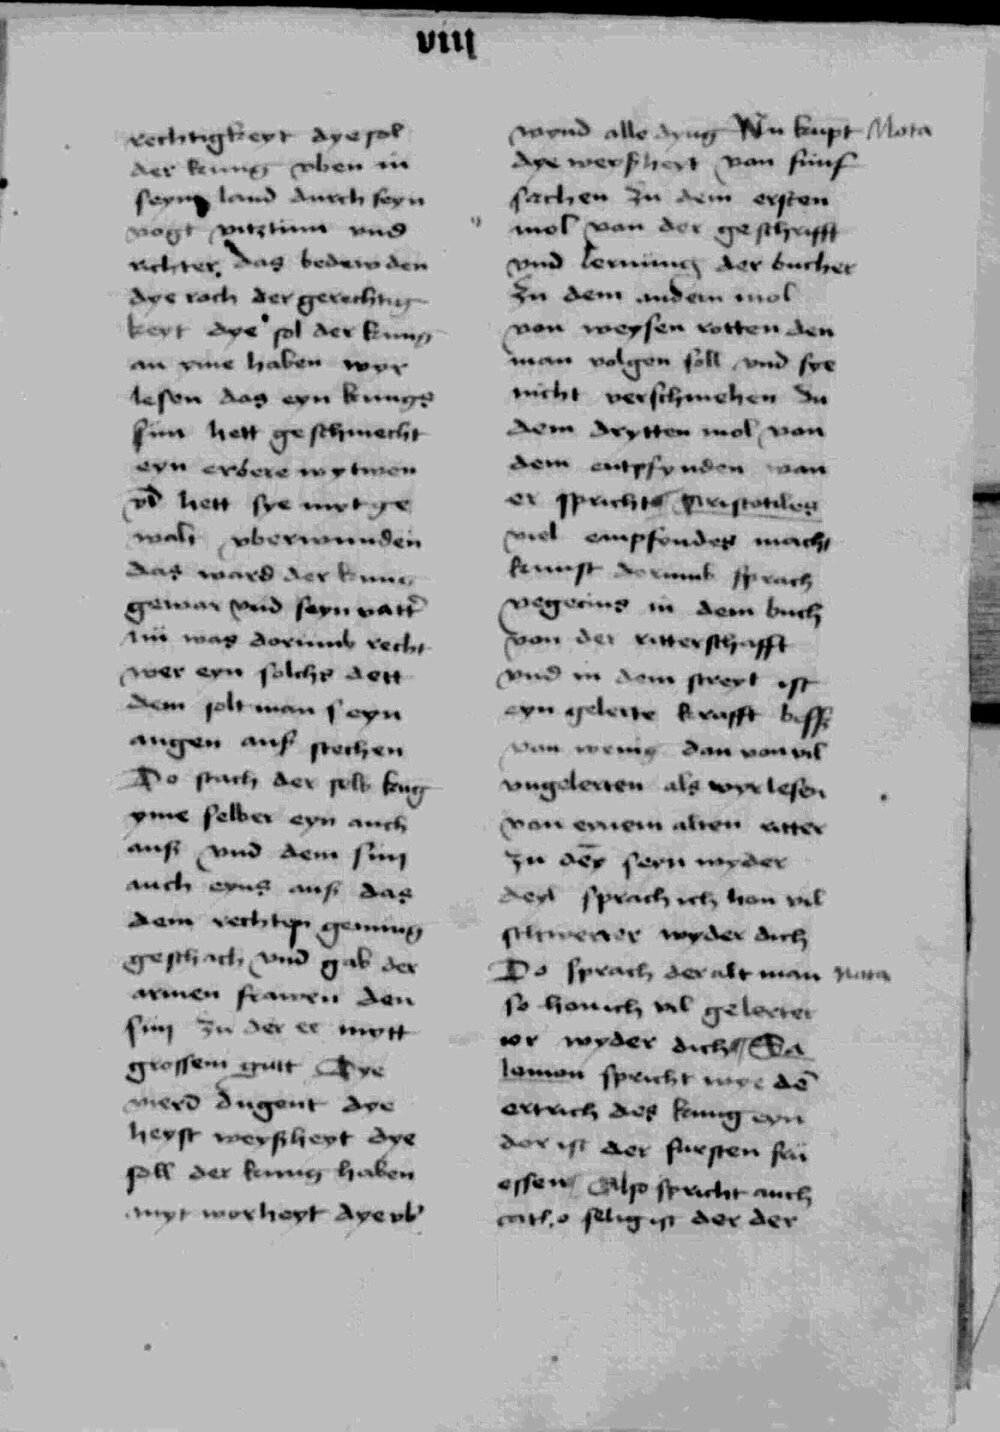 viij
rechtigkeyt dye sol
der kunig vben in
seym land durch seyn
vogt vitztum vnd
richter das bedewden
dye roch der gerechtig
keyt dye sol der kunig
an yme haben wyr
lesen das eyn kungs
sun hett geschmecht
eyn erbere wytwen
vnd hett sye myt ge
walt vberwunden
das ward der kunig
gewar vnd seyn vatter
nu was dorumb recht
wer eyn solchs dett
dem solt man seyn
augen auß stechen
Do stach der selb kung
yme selber eyn auch
auß vnd dem sun
auch eyns auß das
dem rechten genung
geschach vnd gab der
armen frawen den
sun zu der ee mytt
grossem gutt Dye
vierd dugent dye
heyst weyßheyt dye
soll der kunig haben
myt worheyt dye vber
wynd alle dyng Nu kupt Nota
dye weyßheyt von funf
sachen zu dem ersten
mol von der geschrifft
vnd lernung der bucher
zu dem andern mol
von weysen retten den
man volgen soll vnd sye
nicht verschmehen Zu
dem drytten mol von
dem entpfynden wan
er spricht Aristotiles
viel empfendes macht
kunst dorumb sprach
vegecius in dem buch
von der ritterschafft
vnd in dem streyt ist
eyn gelerte krafft besser
von wenig dan von vil
vngelerten als wyr lesen
von eynem alten ritter
zu dem seyn wyder
deyl sprach ich hon vil
schwerter wyder dich
Do sprach der alt man Nota
so hon ich vil gelerter
wyder dich Sa
lomon spricht wye dem
ertrich des kunig eyn
der ist der fursten fru
essen Also spricht auch
catho selig ist der der